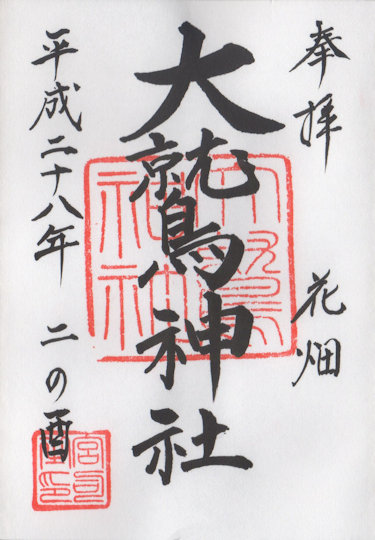 奉拝　花畑
大鷲神社
平成二十八年　二の酉